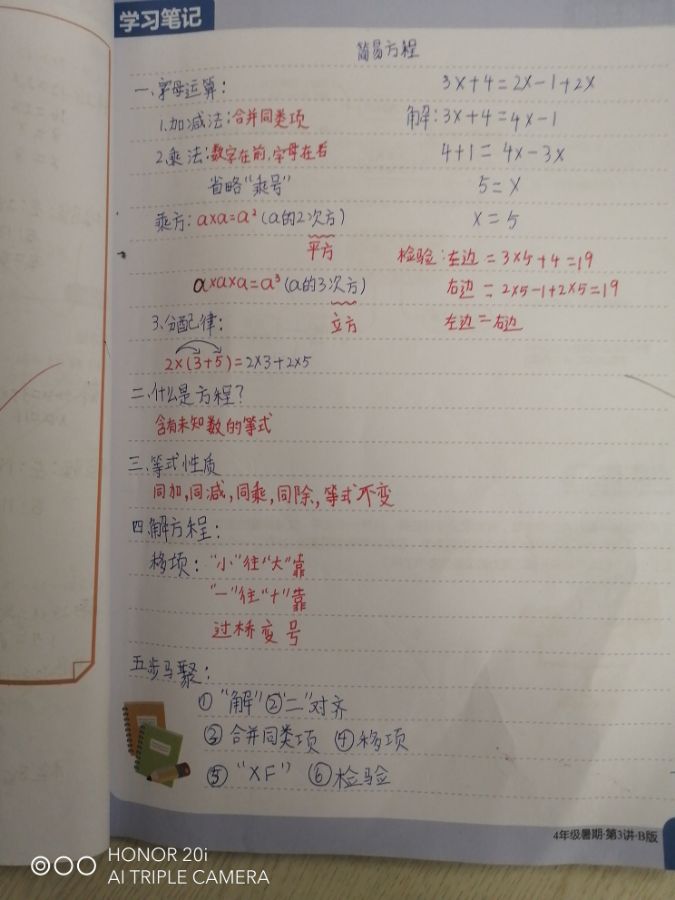 学习笔记
简易方程
一、字母运算：
1.加减法：合并同类项
2.乘法：数字在前，字母在后
省略“乘号”
乘方：a×a=a²（a的2次方）
平方
a×a×a=a³（a的3次方）
立方
3.分配律：
2×(3+5)=2×3+2×5
二、什么是方程？
含有未知数的等式
三、等式性质
同加，同减，同乘，同除，等式不变
四、解方程：
移项：“小”往“大”靠
“一”往“十”靠
过桥变号
五步马聚：
①“解”②“=”对齐
③合并同类项 ④移项
⑤“XF” ⑥检验
3x+4=2x-1+2x
解：3x+4=4x-1
4+1=4x-3x
5=x
x=5
检验：左边=3×5+4=19
右边=2×5-1+2×5=19
左边=右边
4年级暑期·第3讲·B版
HONOR 20i
AI TRIPLE CAMERA